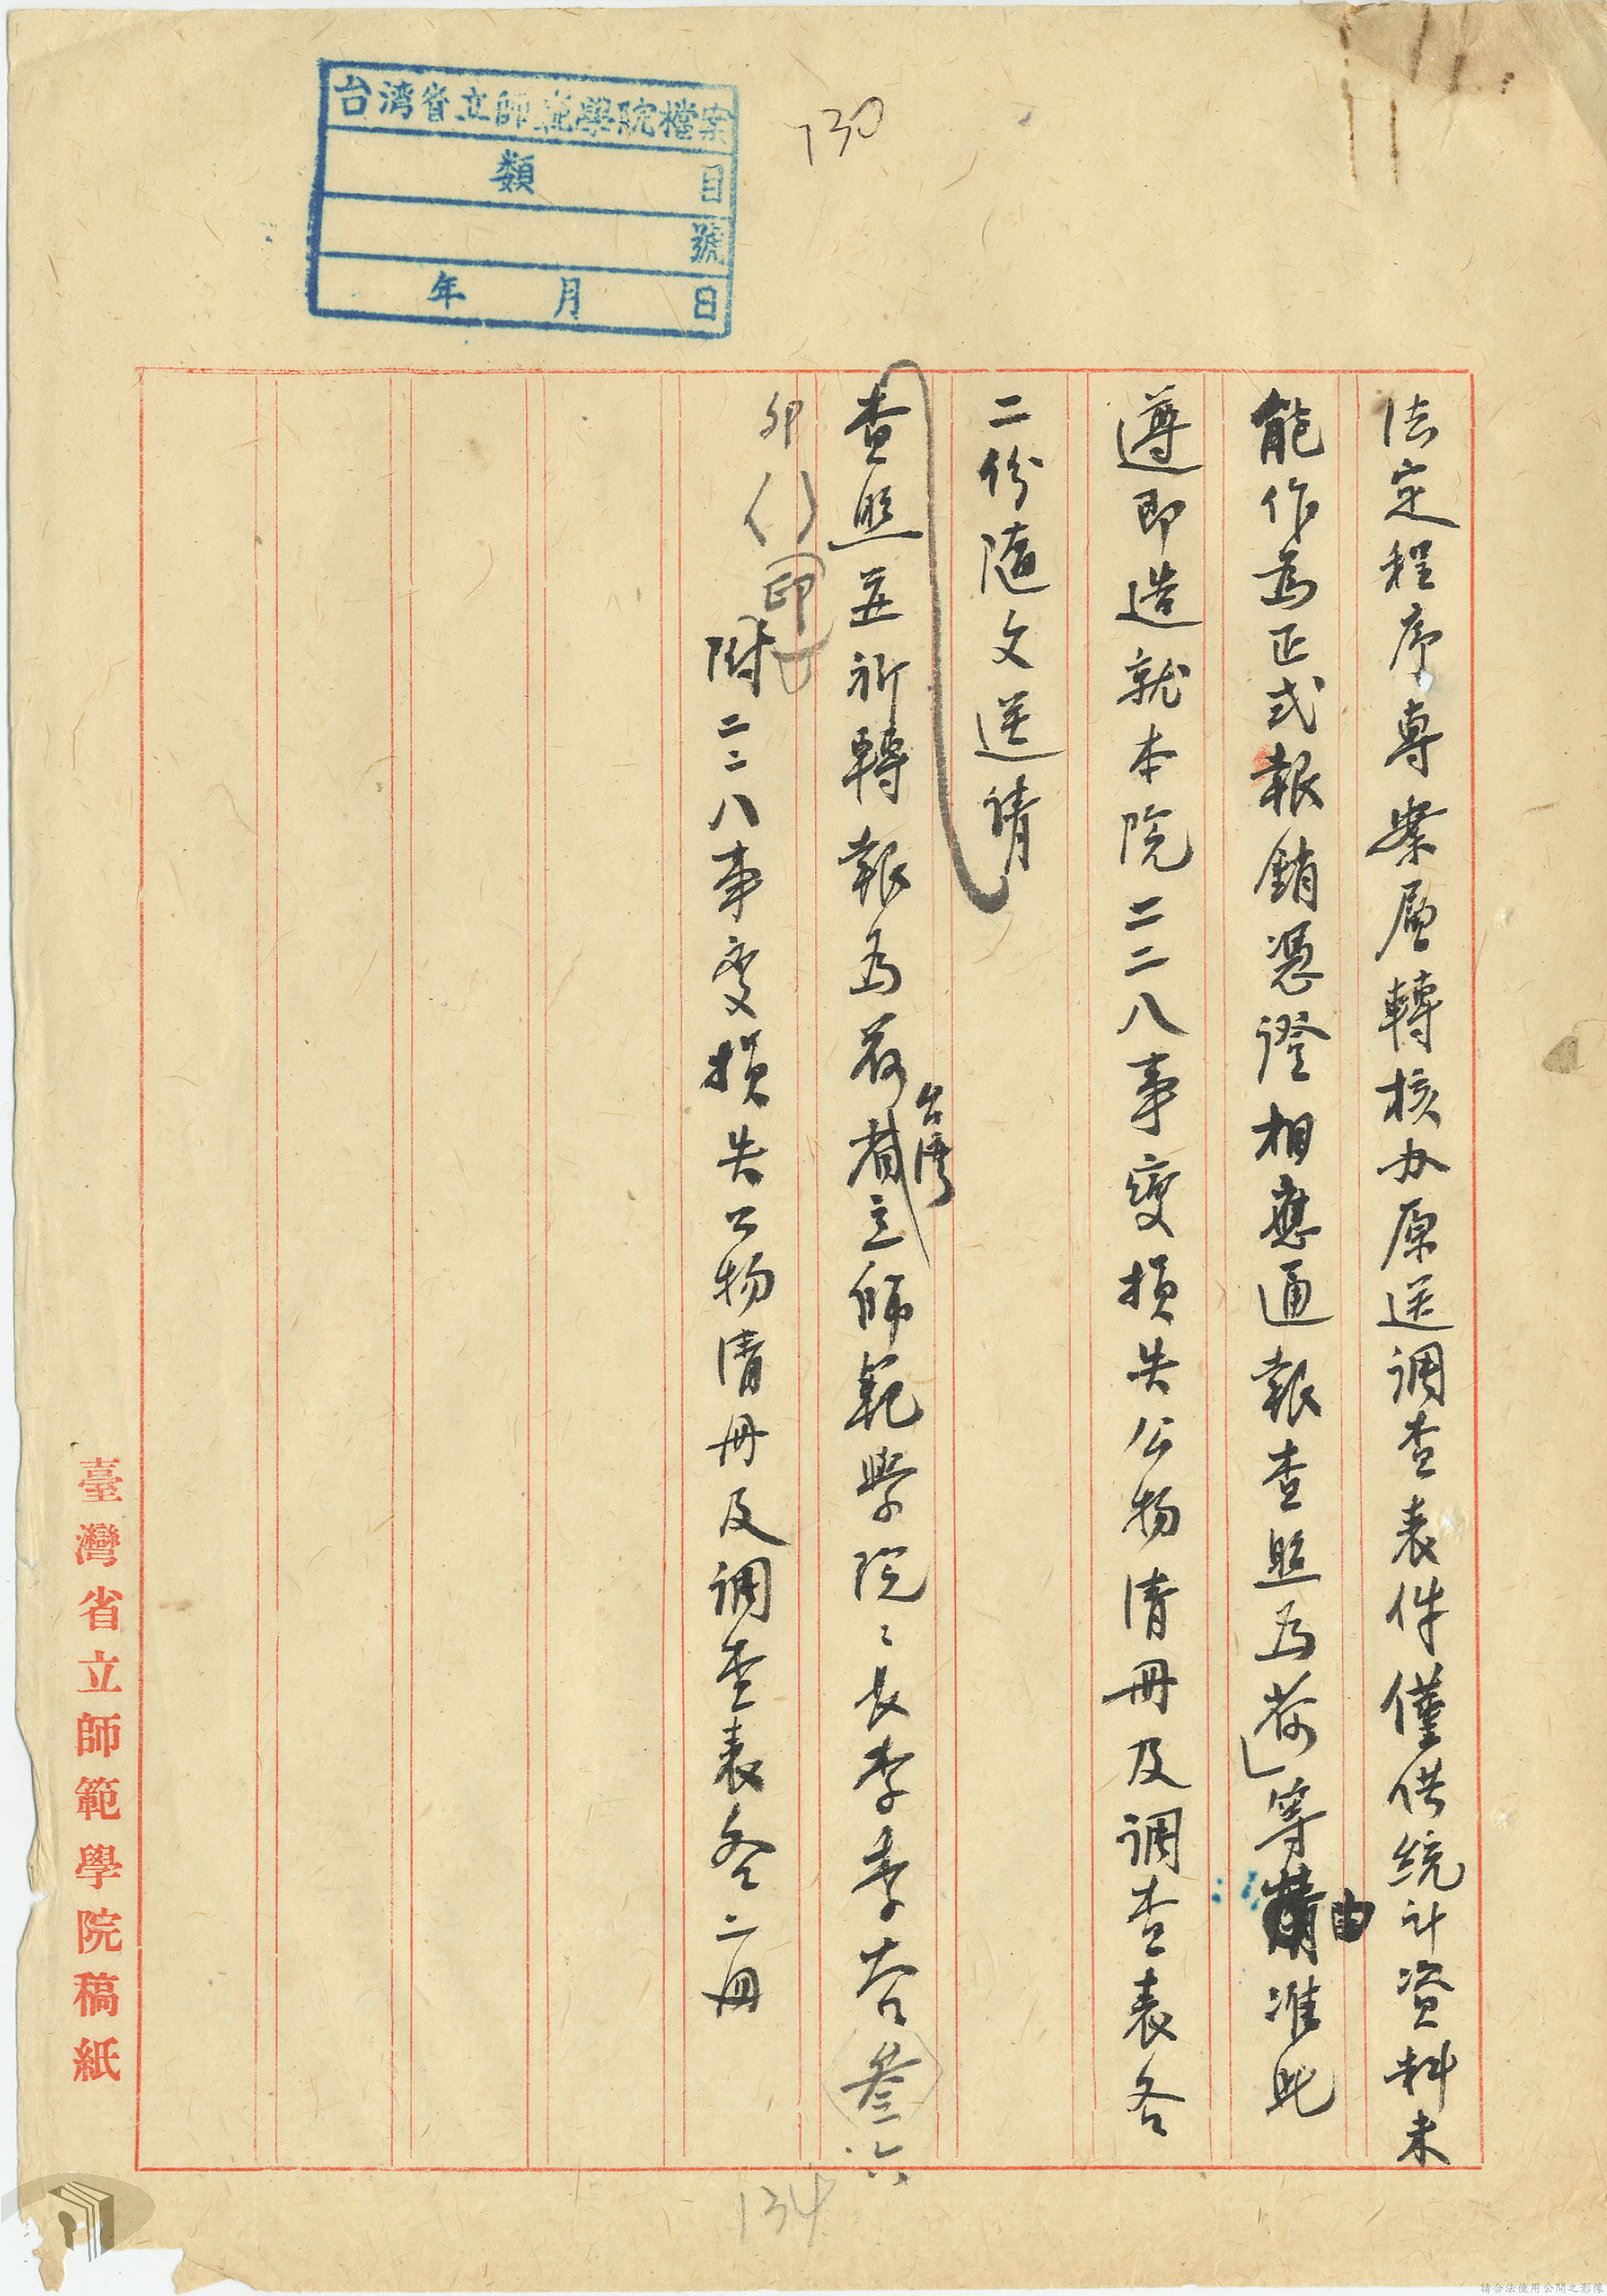 台湾省立師範學院檔案
目 類
號
日 月 年
730
法定程序專案層轉核办原送调查表件僅供統计資料未
能作為正式報銷憑證相應通報查照為荷」等由准此
遵即造就本院二二八事變損失公物清冊及调查表各
二份隨文送请
查照並祈轉報為荷台灣省立師範學院〻長李季谷叁六
卯()印
附二二八事变損失公物清冊及调查表各二冊
134
臺灣省立師範學院稿紙
請合法使用公開之影像